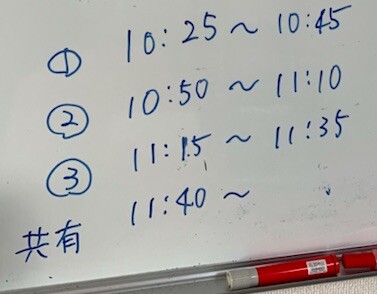 ① 10:25～10:45
② 10:50～11:10
③ 11:15～11:35
共有 11:40～